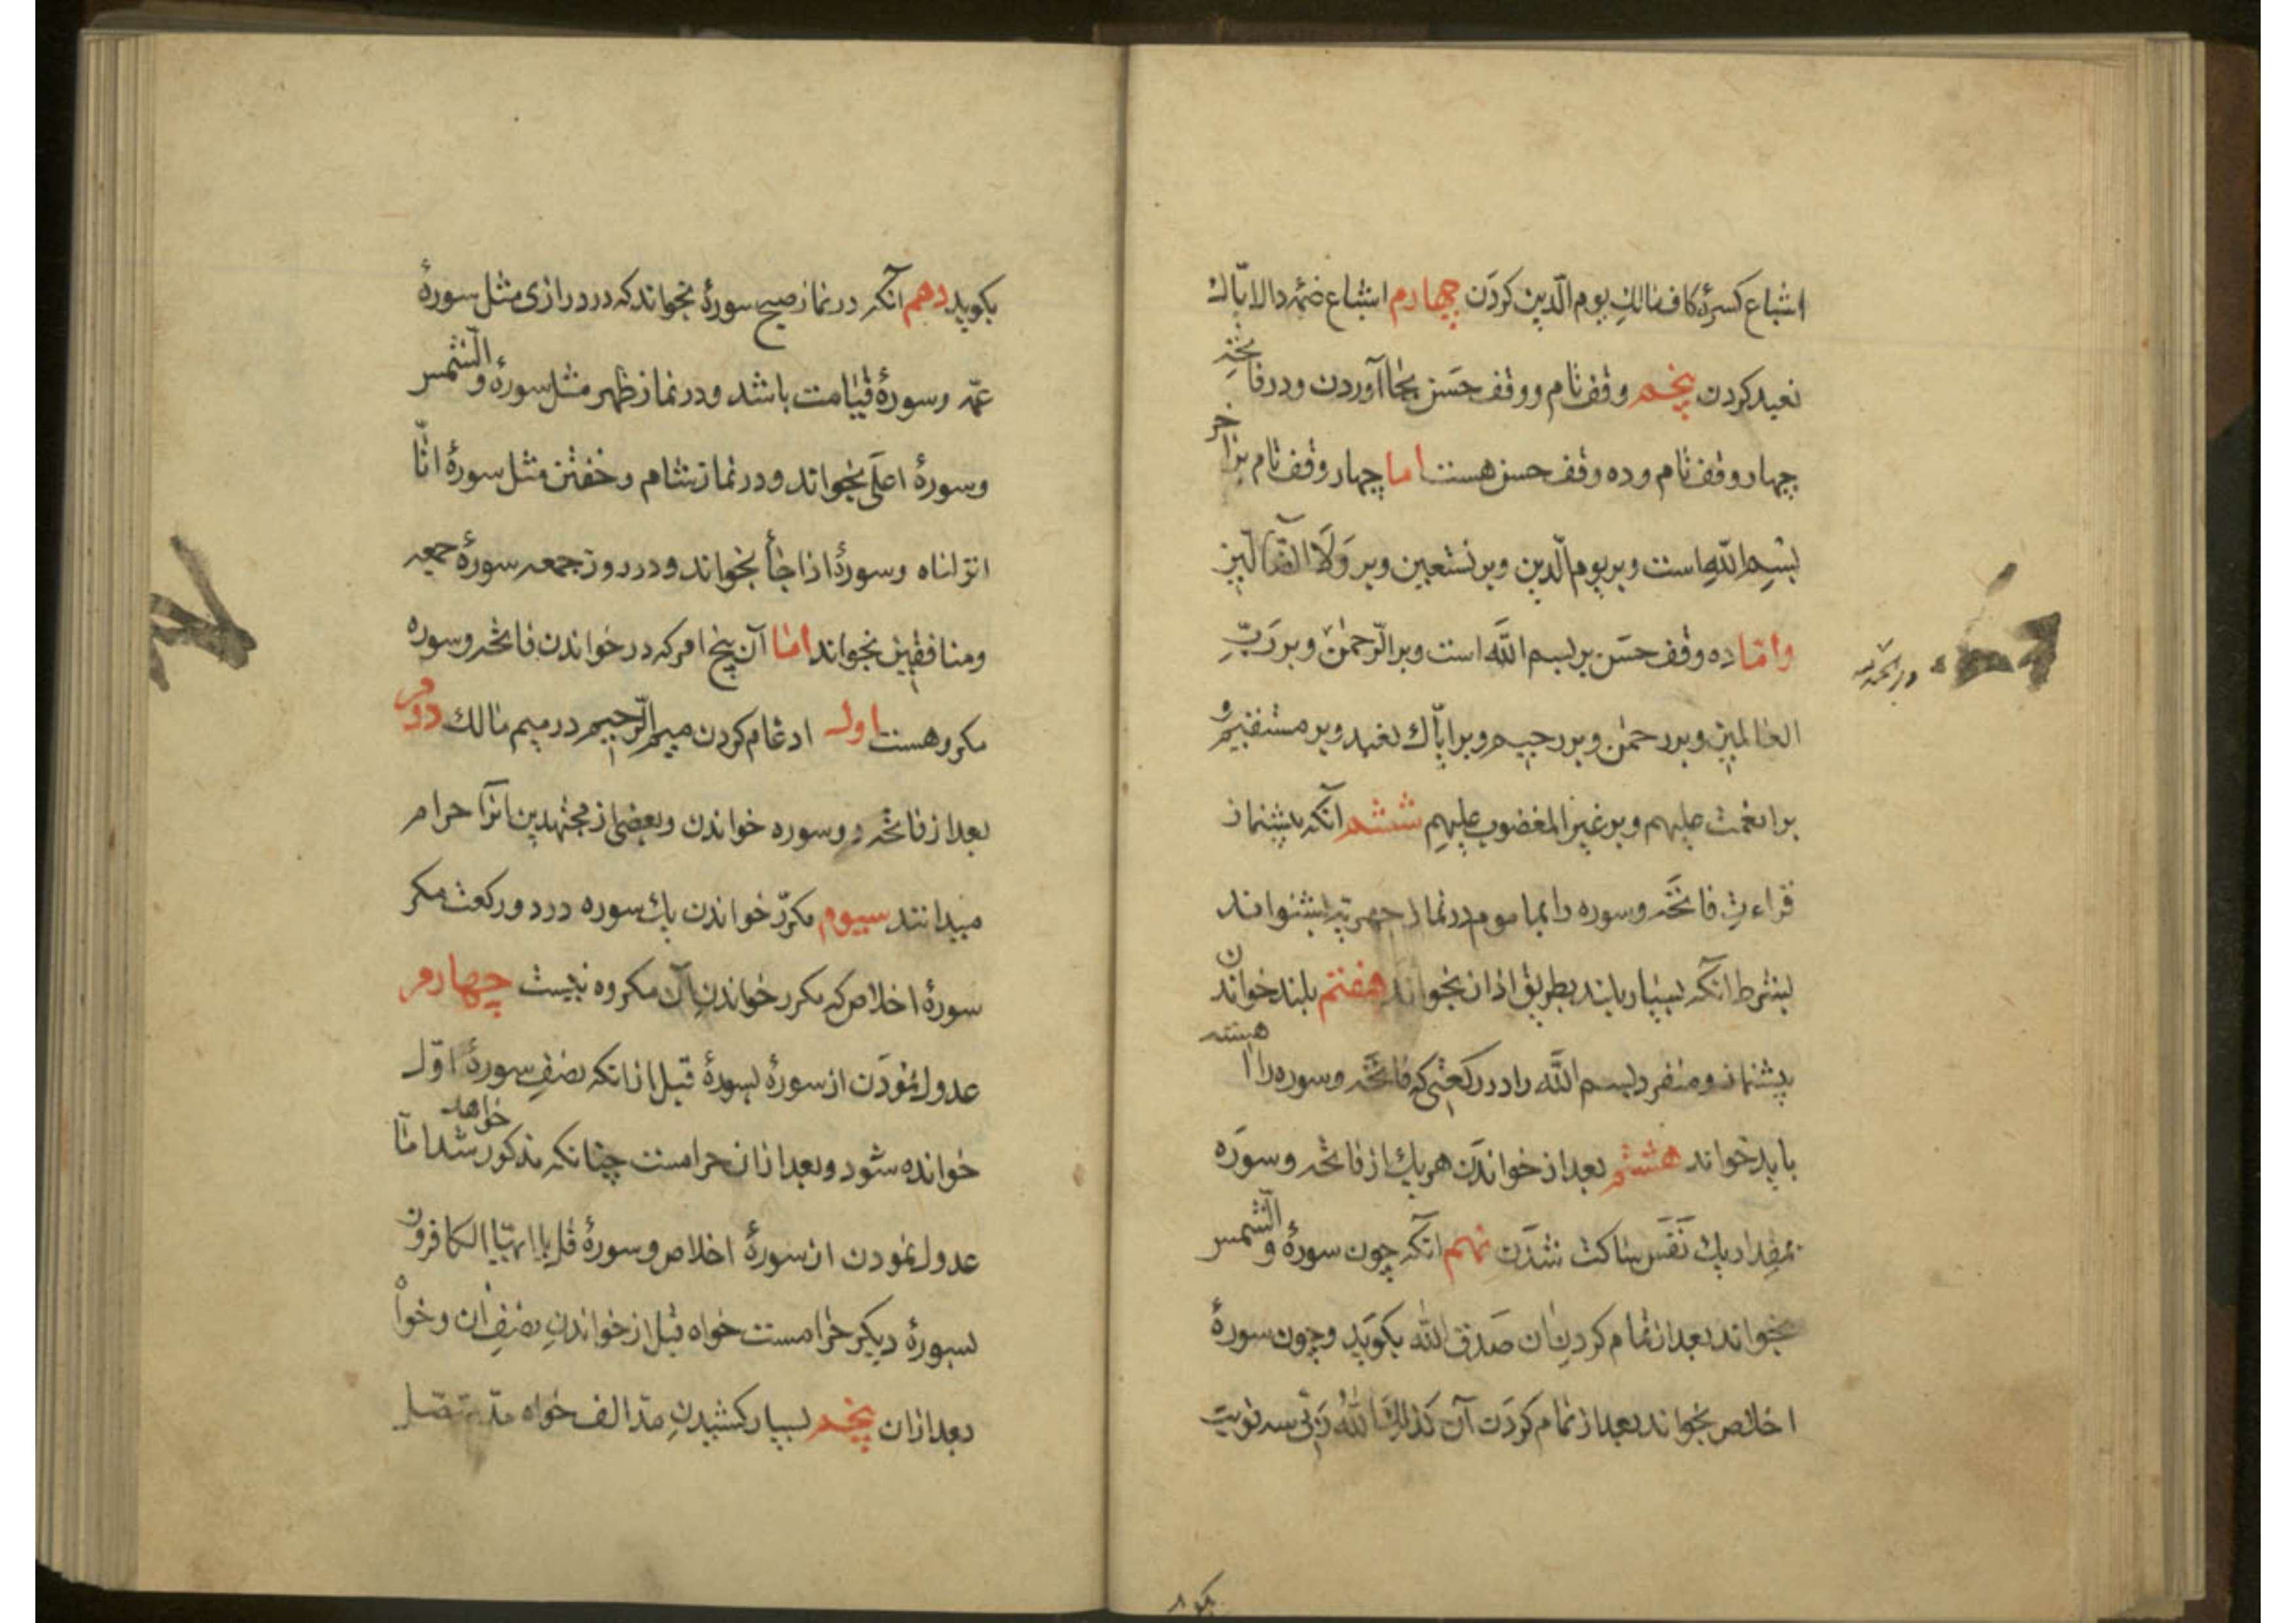 اشباع کسرهٔ کاف مالك یوم الدّین کردن چهارم اشباع ضمّه دال ایّاك
نعبد کردن پنجم وقف تام و وقف حسن بجا آوردن و در فاتحه
چهار وقف تام و ده وقف حسن هست اما چهار وقف تام بر آخر
بسم الله است و بر یوم الدین و بر نستعین و بر ولا الضآلین
و امّا ده وقف حسن بر بسم الله است و بر الرّحمن و بر ربّ
العالمین و بر رحمن و بر رحیم و بر ایّاك نعبد و بر مستقیم و
بر انعمت علیهم و بر غیر المغضوب علیهم ششم آنکه پیشنماز
قراءت فاتحه و سوره را بماموم در نماز جهریّه بشنواند
بشرط آنکه بسیار بلند بطریق اذان نخواند هفتم بلند خواندن
پیشنماز و منفرد بسم الله را در رکعتی که فاتحه و سوره را آهسته
باید خواند هشتم بعد از خواندن هر یك از فاتحه و سوره
بمقدار یك نفس ساکت شدن نهم آنکه چون سورهٔ و الشّمس
بخواند بعد از تمام کردن آن صدق الله بگوید و چون سورهٔ
اخلاص بخواند بعد از تمام کردن آن کذلك الله ربّی سه نوبت
بگوید دهم آنکه در نماز صبح سورهٔ بخواند که در درازی مثل سورهٔ
عمّ و سورهٔ قیامت باشد و در نماز ظهر مثل سورهٔ و الشّمس
و سورهٔ اعلی بخواند و در نماز شام و خفتن مثل سورهٔ انّا
انزلناه و سورهٔ اذا جاء بخواند و در روز جمعه سورهٔ جمعه
و منافقین بخواند امّا آن پنج امر که در خواندن فاتحه و سوره
مکروهست اول ادغام کردن میم الرّحیم در میم مالك دوم
بعد از فاتحه دو سوره خواندن و بعضی از مجتهدین آنرا حرام
میدانند سیوم مکرّر خواندن یك سوره در دو رکعت مکر
سورهٔ اخلاص که مکرر خواندن آن مکروه نیست چهارم
عدول نمودن از سورهٔ بسورهٔ قبل از انکه نصف سورهٔ اوّل
خوانده شود و بعد از ان حرامست چنانکه مذکور خواهد شد امّا
عدول نمودن از سورهٔ اخلاص و سورهٔ قل یا ایّها الکافرون
بسورهٔ دیگر حرامست خواه قبل از خواندن نصف ان و خواه
بعد از ان پنجم بسیار کشیدن مدّ الف خواه مدّ متّصل